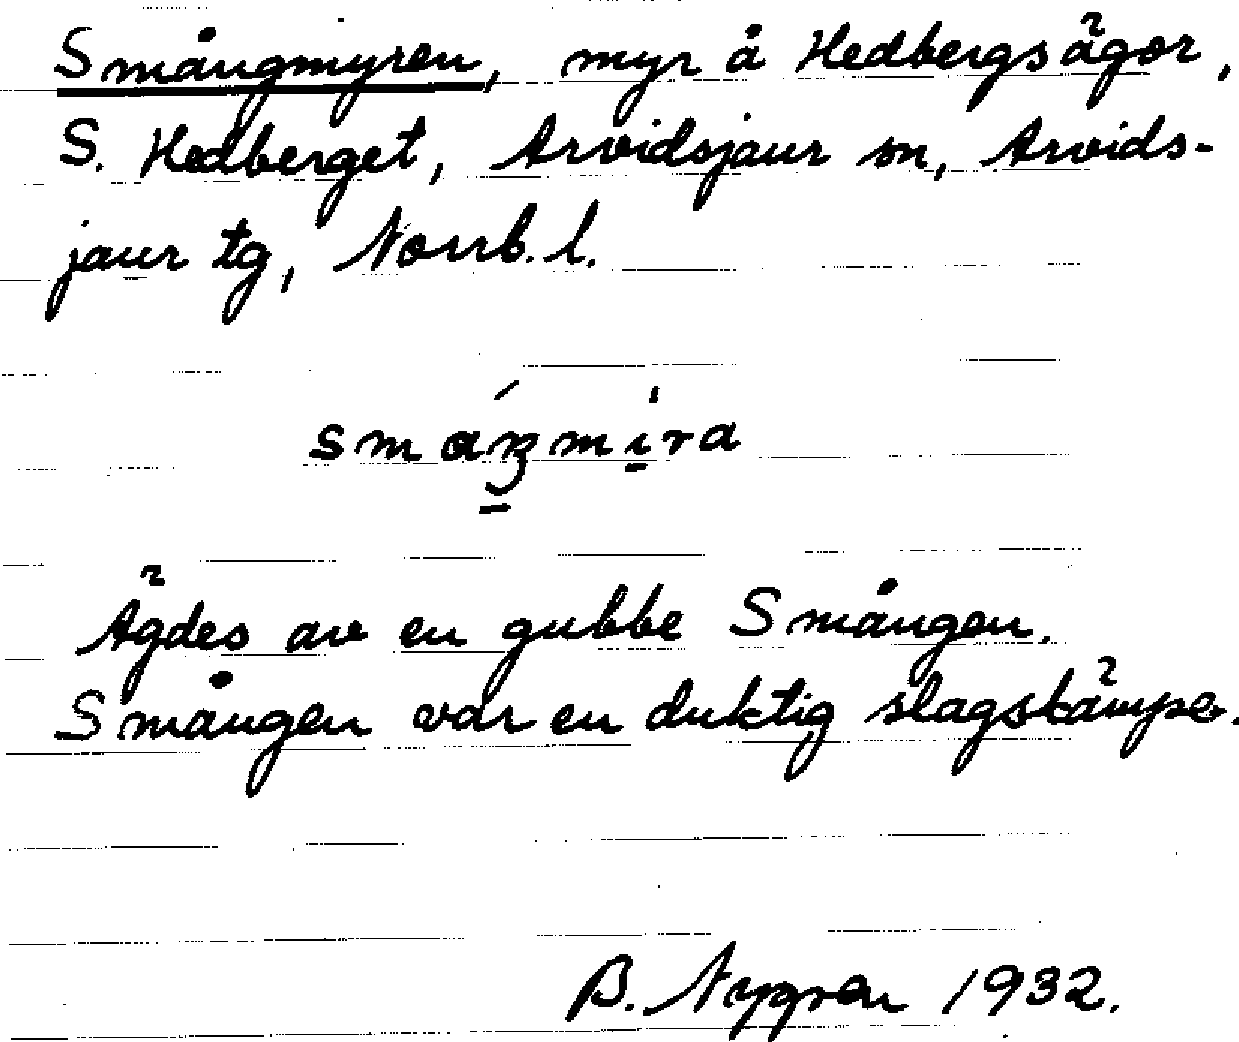 Smångmyren, myr å Hedbergsägor,
S. Hedberget, Arvidsjaur sn, Arvids-
jaur tg, Norrb. l.
Ägdes av en gubbe Smången.
Smången var en duktig slagskämpe.
B. Nygren 1932.